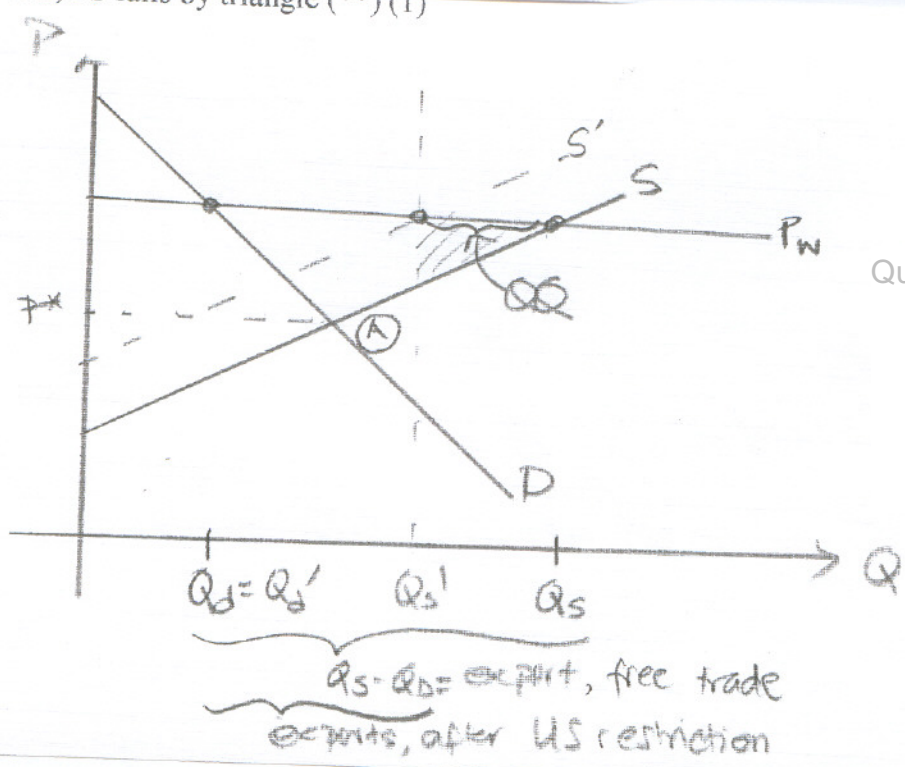 by triangle (**) (1)
P
S'
S
Pw
Qu
P*
**
A
D
Q
Qd = Qd' Qs' Qs
Qs - QD = export, free trade
exports, after US restriction